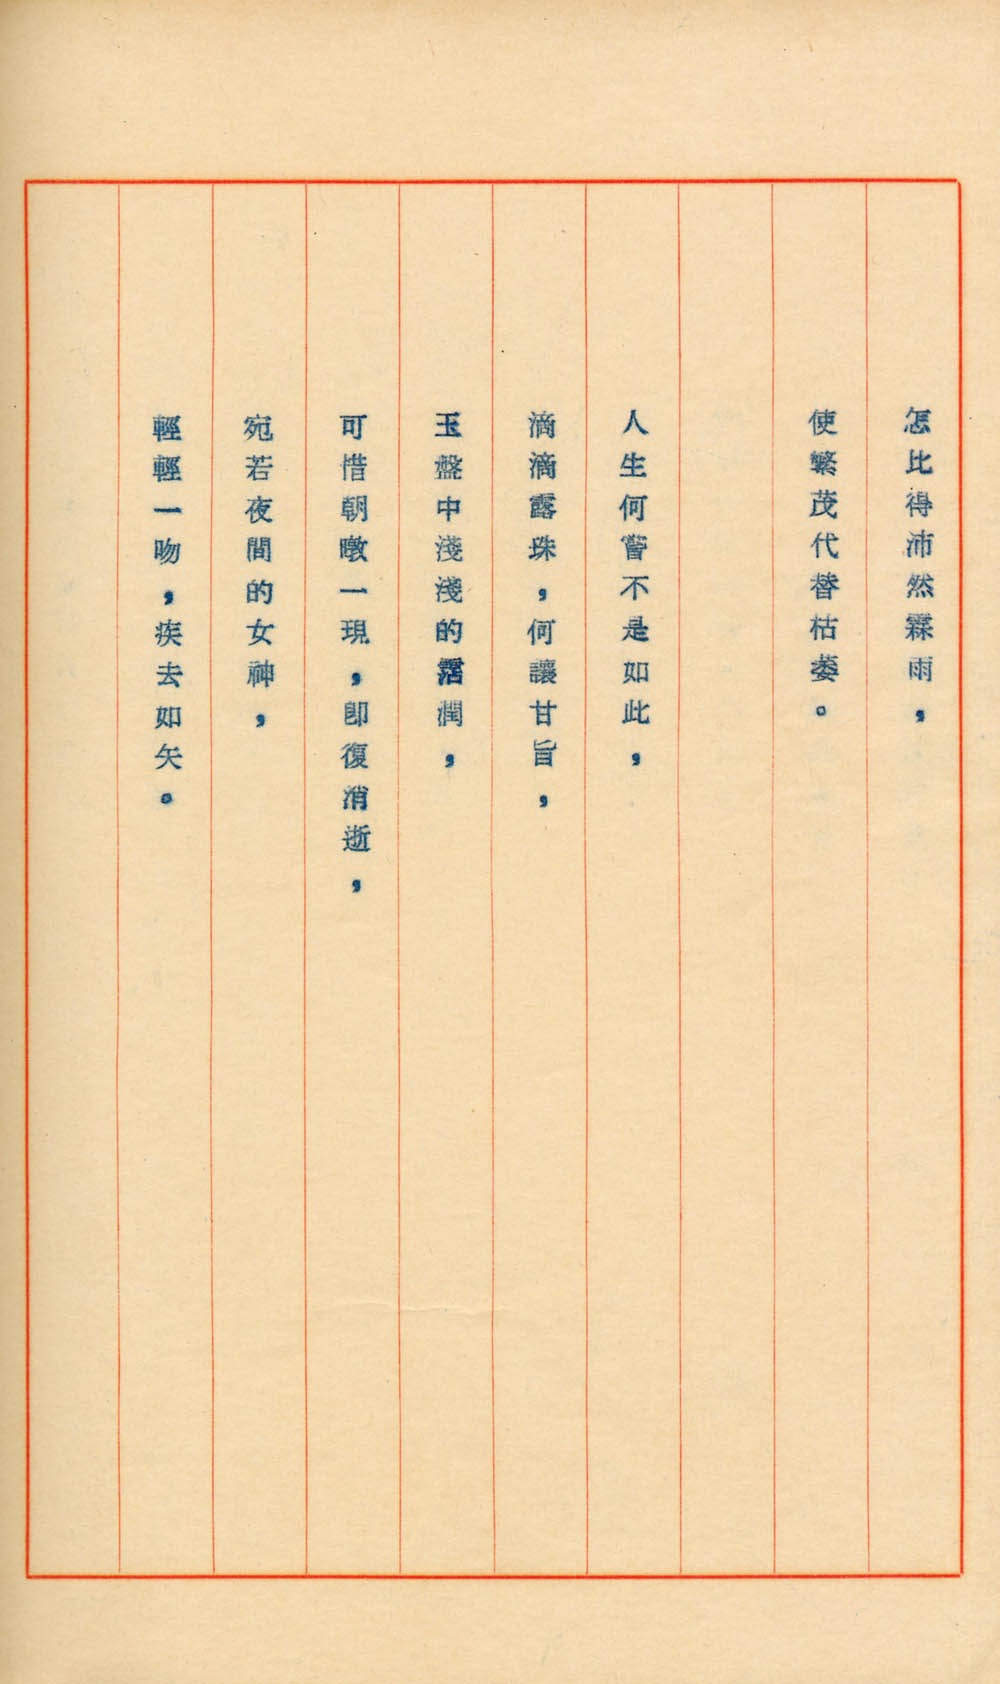 怎比得沛然霖雨，
使繁茂代替枯萎。
人生何嘗不是如此，
滴滴露珠，何讓甘旨，
玉盤中淺淺的潤，
可惜朝暾一現，卽復消逝，
宛若夜間的女神，
輕輕一吻，疾去如矢。